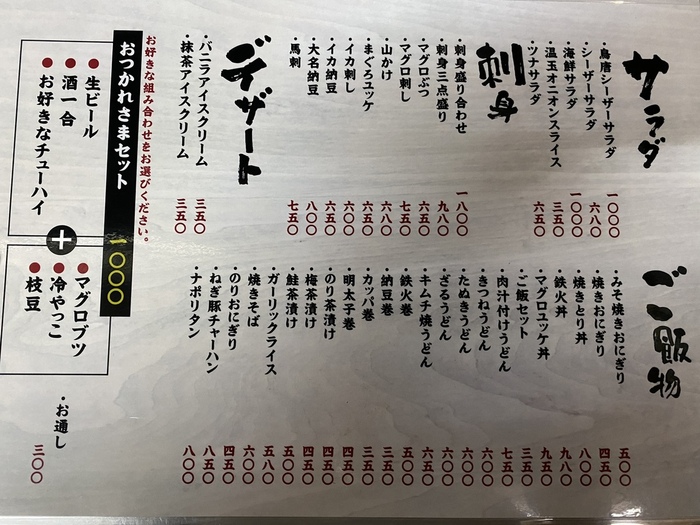 サラダ
・鳥唐シーザーサラダ 一〇〇〇
・シーザーサラダ 六八〇
・海鮮サラダ 一〇〇〇
・温玉オニオンスライス 三五〇
・ツナサラダ 六五〇
刺身
・刺身盛り合わせ 一八〇〇
・刺身三点盛り 九八〇
・マグロぶつ 六五〇
・マグロ刺し 七五〇
・山かけ 六八〇
・まぐろユッケ 六五〇
・イカ刺し 六〇〇
・イカ納豆 六五〇
・大名納豆 八〇〇
・馬刺 七五〇
デザート
・バニラアイスクリーム 三五〇
・抹茶アイスクリーム 三五〇
ご飯物
・みそ焼きおにぎり 五〇〇
・焼きおにぎり 四五〇
・焼きとり丼 八〇〇
・鉄火丼 九八〇
・マグロユッケ丼 九五〇
・ご飯セット 三五〇
・肉汁付けうどん 七五〇
・きつねうどん 六〇〇
・たぬきうどん 六〇〇
・ざるうどん 六〇〇
・キムチ焼うどん 六五〇
・鉄火巻 五〇〇
・納豆巻 三五〇
・カッパ巻 三五〇
・明太子巻 四五〇
・のり茶漬け 四五〇
・梅茶漬け 四五〇
・鮭茶漬け 五〇〇
・ガーリックライス 五八〇
・焼きそば 六〇〇
・のりおにぎり 四五〇
・ねぎ豚チャーハン 八五〇
・ナポリタン 八〇〇
お好きな組み合わせをお選びください。
おつかれさまセット 一〇〇〇
●生ビール
●酒一合
●お好きなチューハイ
+
●マグロブツ
●冷やっこ
●枝豆
・お通し 三〇〇